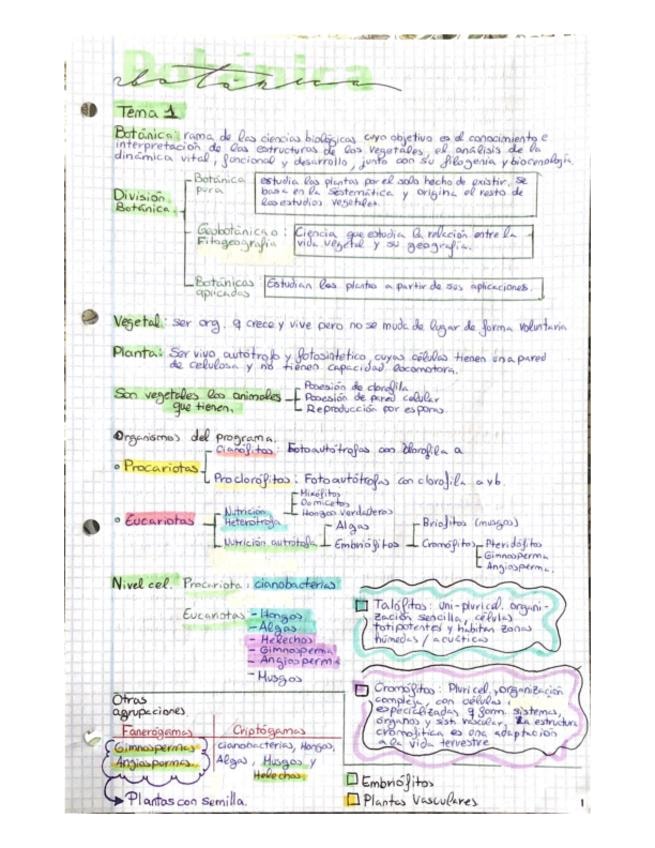 Botánica
botánica
Tema 1
Botánica: rama de las ciencias biológicas cuyo objetivo es el conocimiento e
interpretación de las estructuras de los vegetales, el análisis de la
dinámica vital, funcional y desarrollo, junto con su filogenia y biocenología.
División Botánica.
Botánica pura
estudia las plantas por el solo hecho de existir, se
basa en la sistemática y origina el resto de
los estudios vegetales.
Geobotánica o Fitogeografía:
Ciencia que estudia la relación entre la
vida vegetal y su geografía.
Botánicas aplicadas
Estudian las plantas a partir de sus aplicaciones.
Vegetal: ser org. q crece y vive pero no se muda de lugar de forma voluntaria
Planta: Ser vivo autótrofo y fotosintético, cuyas células tienen una pared
de celulosa y no tienen capacidad locomotora.
Son vegetales los animales
que tienen.
Posesión de clorofila
Posesión de pared celular
Reproducción por esporas.
Organismos del programa.
Procariotas
Cianófitos: Fotoautótrofas con clorofila a
Proclorófitos: Fotoautótrofas con clorofila a y b.
Eucariotas
Nutrición Heterótrofa
Mixófitos
Oomicetos
Hongos verdaderos
Nutrición autótrofa
Algas
Embriófitos
Briofitos (musgos)
Cromófitos
Pteridófitos
Gimnosperma
Angiosperma.
Nivel cel. Procariota: cianobacterias
Eucariotas - Hongos
- Algas
- Helechos
- Gimnosperma
- Angiosperma
- Musgos
Talófitos: Uni-pluricel. organi-
zación sencilla, células
totipotentes y habitan zonas
húmedas / acuáticas
Cromófitos: Pluricel, organización
compleja, con células
especializadas q form. sistemas,
órganos y sist. vascular. La estructura
cromofítica es una adaptación
a la vida terrestre
Otras
agrupaciones
Fanerógamas
Criptógamas
Gimnospermas
Angiospermas.
cianobacterias, Hongos,
Algas, Musgos y
Helechos
Plantas con semilla.
Embriófitos
Plantas Vasculares
1